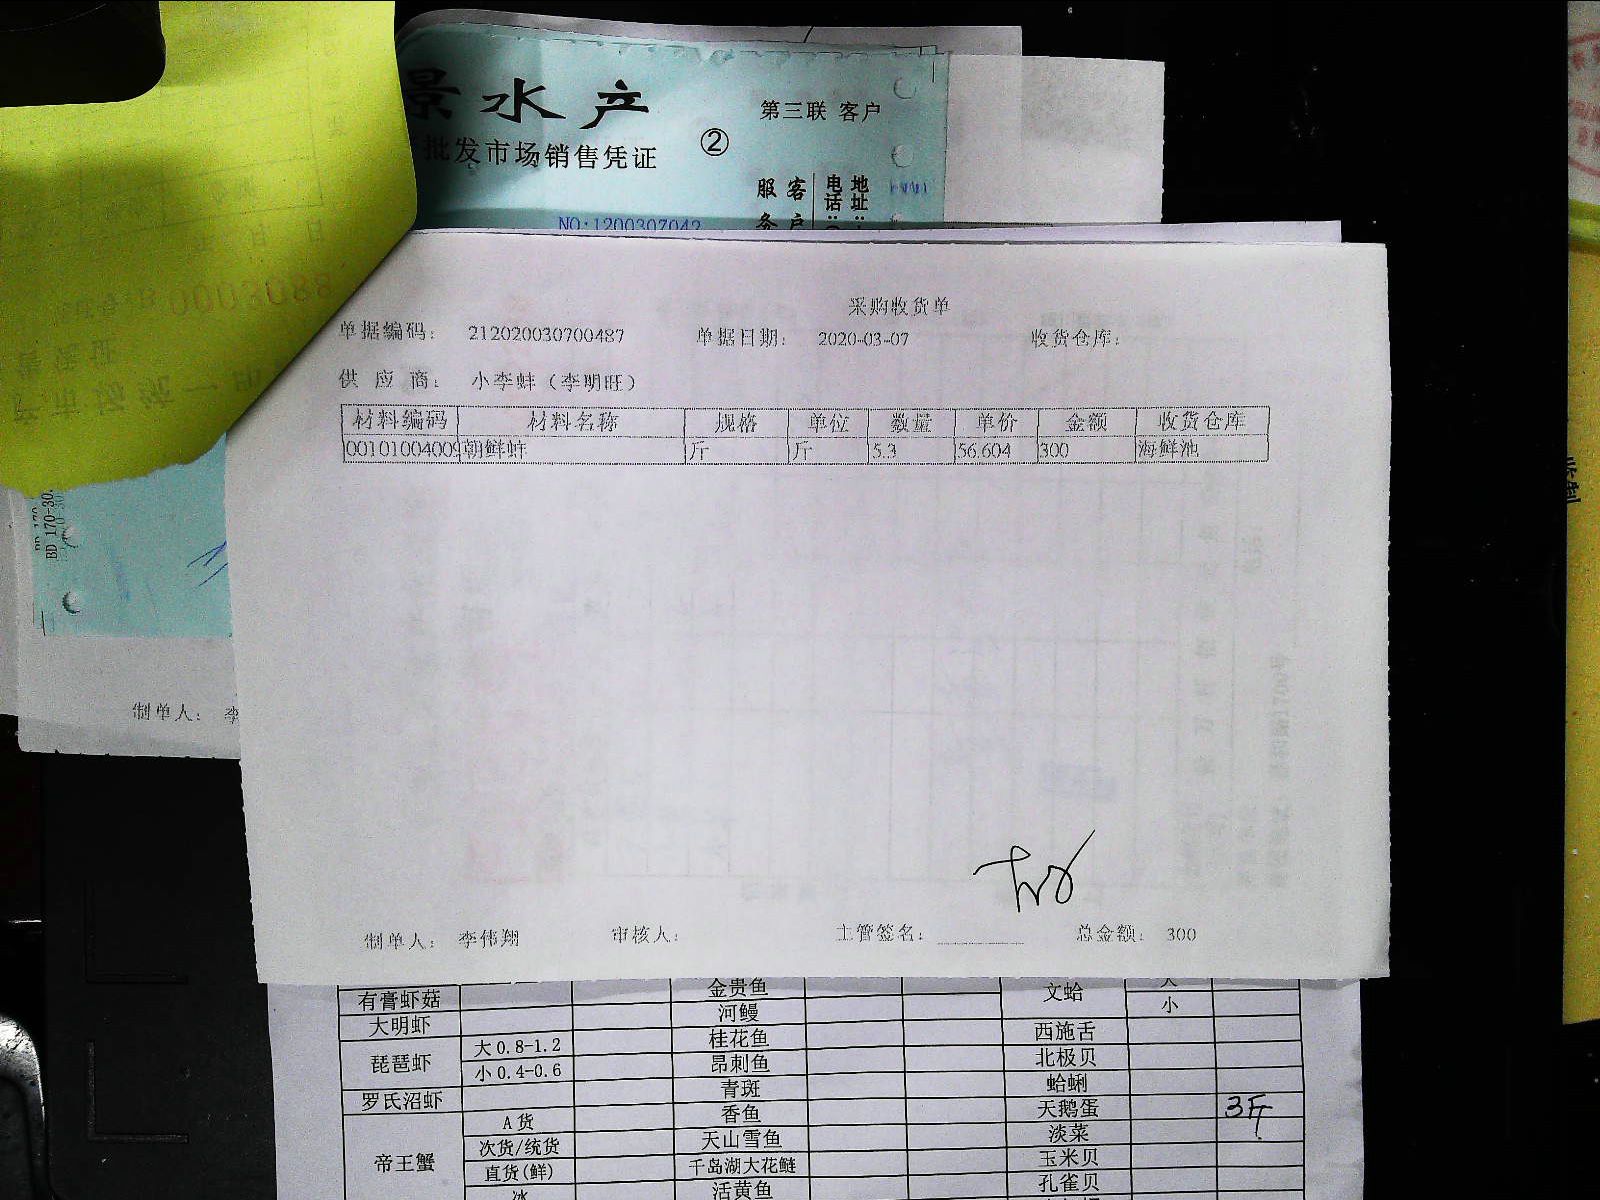 景水产
第三联 客户
批发市场销售凭证 ②
服务 客户 电话: 地址:
NO:1200307042
0003088
采购收货单
单据编码: 212020030700487 单据日期: 2020-03-07 收货仓库:
供应商: 小李蚌(李明旺)
材料编码 材料名称 规格 单位 数量 单价 金额 收货仓库
00101004009 朝鲜蚌 斤 斤 5.3 56.604 300 海鲜池
BD 170-30
制单人: 李
制单人: 李伟翔 审核人: 主管签名: 总金额: 300
有膏虾菇 金贵鱼 文蛤 大
大明虾 河鳗 小
琵琶虾 大0.8-1.2 桂花鱼 西施舌
小0.4-0.6 昂刺鱼 北极贝
罗氏沼虾 青斑 蛤蜊
帝王蟹 A货 香鱼 天鹅蛋 3斤
次货/统货 天山雪鱼 淡菜
直货(鲜) 千岛湖大花鲢 玉米贝
冰 活黄鱼 孔雀贝